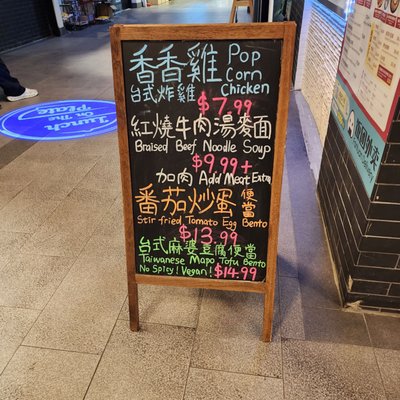 香香雞 Pop Corn Chicken
台式炸雞 $7.99
紅燒牛肉湯麵
Braised Beef Noodle Soup
$9.99+
加肉 Add Meat Extra
番茄炒蛋 便當
Stir fried Tomato Egg Bento
$13.99
台式麻婆豆腐便當
Taiwanese Mapo Tofu Bento
No Spicy! Vegan! $14.99
Lunch
On The
Plate